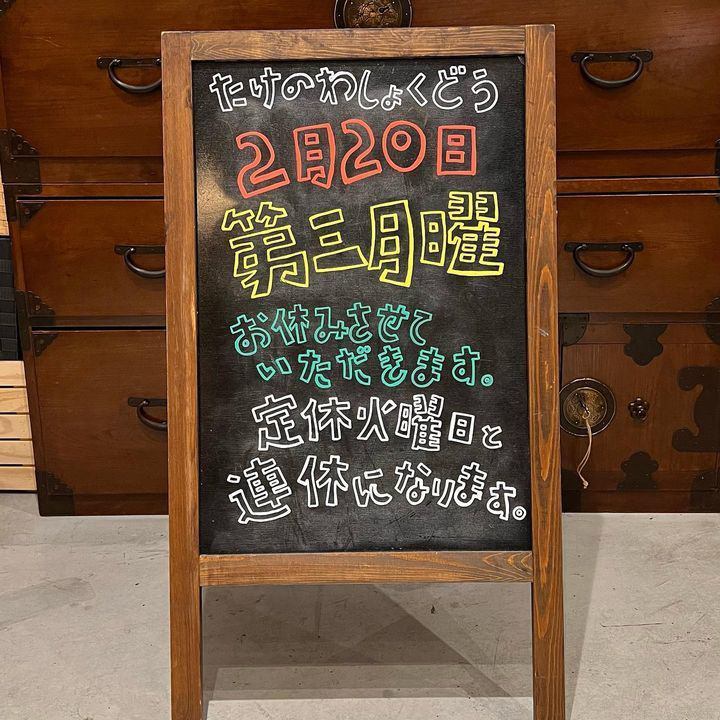 たけのわしょくどう
2月20日
第三月曜
お休みさせて
いただきます。
定休火曜日と
連休になります。